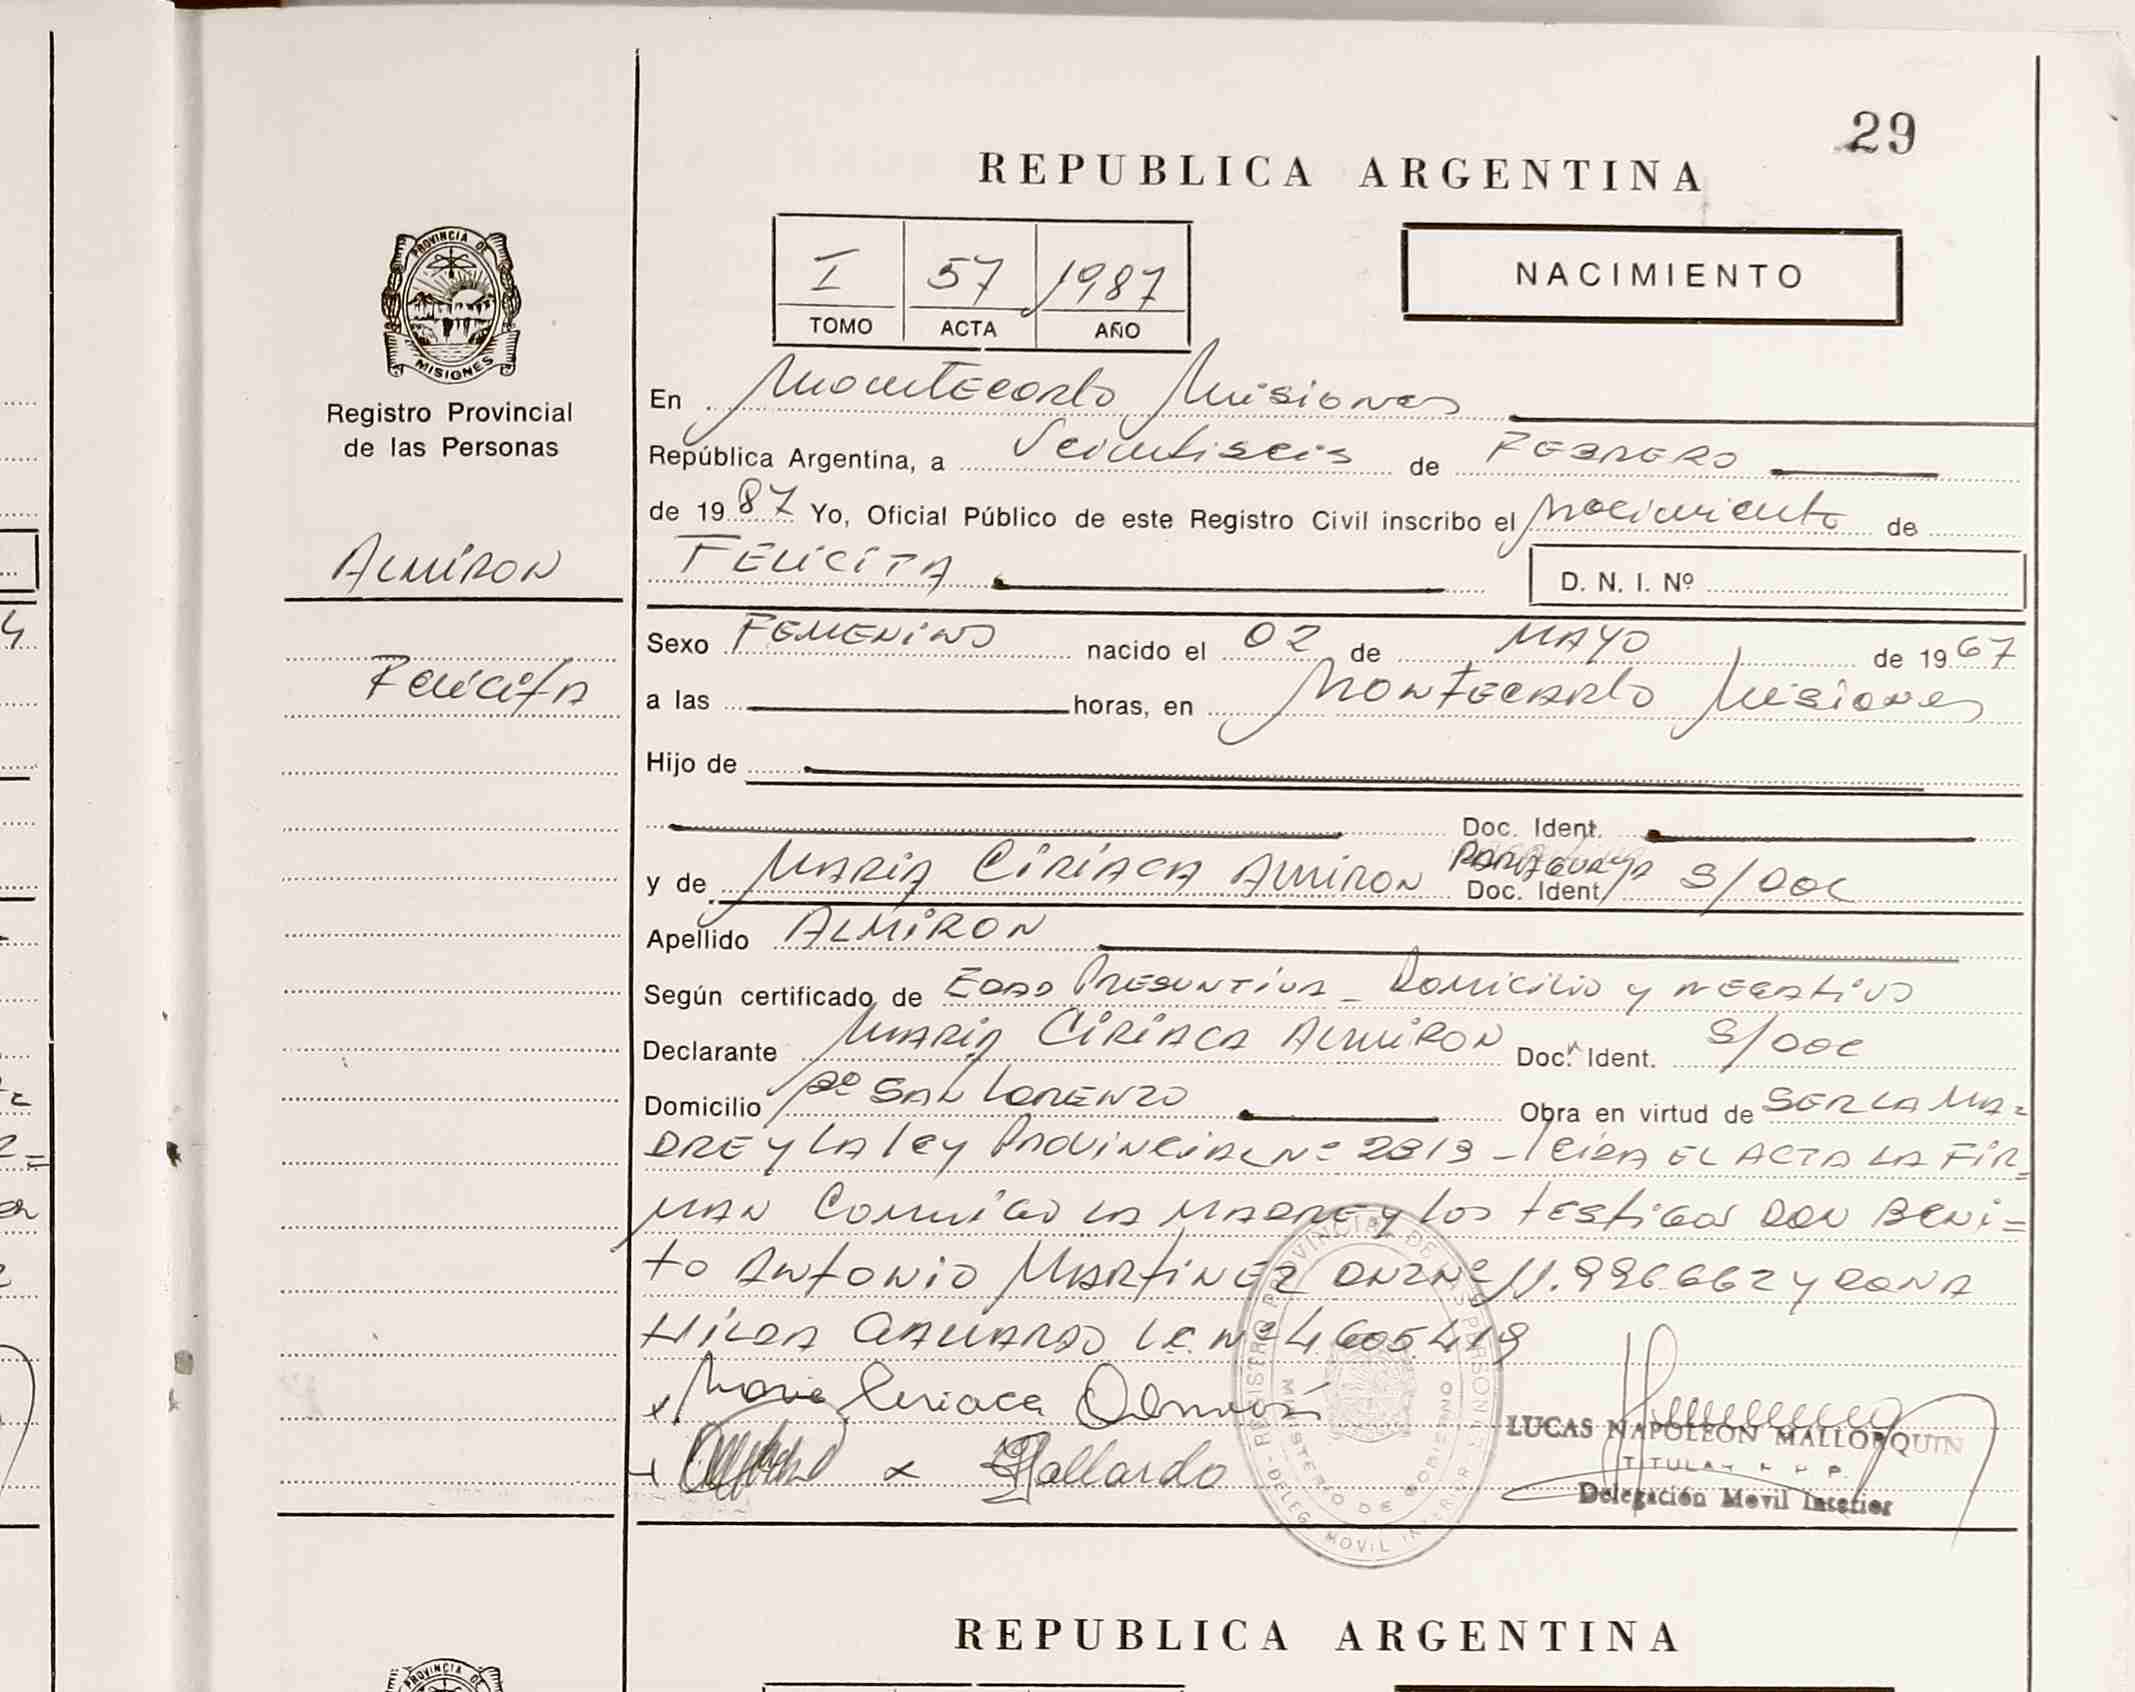 29
REPUBLICA ARGENTINA
I 57 1987
TOMO ACTA AÑO
NACIMIENTO
PROVINCIA DE
MISIONES
Registro Provincial
de las Personas
ALMIRON
Felicita
En Montecarlo Misiones
República Argentina, a Veintiseis de FEBRERO
de 1987 Yo, Oficial Público de este Registro Civil inscribo el Nacimiento de
FELICITA D. N. I. Nº
Sexo FEMENINO nacido el 02 de MAYO de 1967
a las horas, en Montecarlo Misiones
Hijo de
Doc. Ident.
y de MARIA CIRIACA ALMIRON PARAGUAYA Doc. Ident. S/DOC
Apellido ALMIRON
Según certificado de EDAD PRESUNTIVA - Domicilio y NEGATIVO
Declarante MARIA CIRIACA ALMIRON Doc. Ident. S/DOC
Domicilio Bº SAN LORENZO Obra en virtud de SER LA MA-
DRE y LA ley PROVINCIAL Nº 2313 - leida EL ACTA LA FIR=
MAN Conmigo LA MADRE y los testigos DON BENI=
to ANTONIO MARTINEZ DNI Nº 11.996662 y DOÑA
HILDA GALLARDO L.C. Nº 4.605.419
x Maria Ciriaca Almirón
x Gallardo
REGISTRO PROVINCIAL DE LAS PERSONAS
MINISTERIO DE GOBIERNO
DELEG. MOVIL INTERIOR
LUCAS NAPOLEON MALLORQUIN
TITULAR R. P.
Delegación Movil Interior
REPUBLICA ARGENTINA
PROVINCIA DE